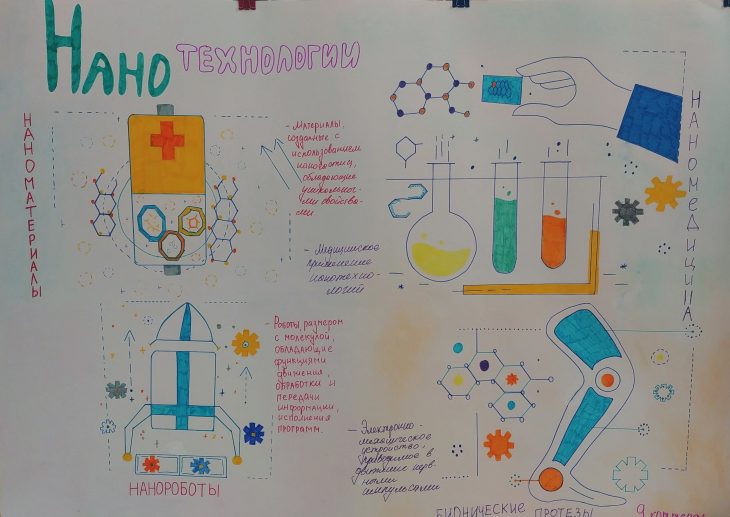 НАНО
ТЕХНОЛОГИИ
НАНОМАТЕРИАЛЫ
- Материалы,
созданные с
использованием
наночастиц,
обладающие
уникальны-
ми свойства-
ми
- Медицинское
применение
нанотехно-
логий
НАНОМЕДИЦИНА
- Роботы, размером
с молекулой,
обладающие
функциями
движения,
обработки и
передачи
информации,
исполнения
программ.
НАНОРОБОТЫ
- Электронно-
механическое
устройство,
приводимое в
движение нерв-
ными
импульсами
БИОНИЧЕСКИЕ ПРОТЕЗЫ
9